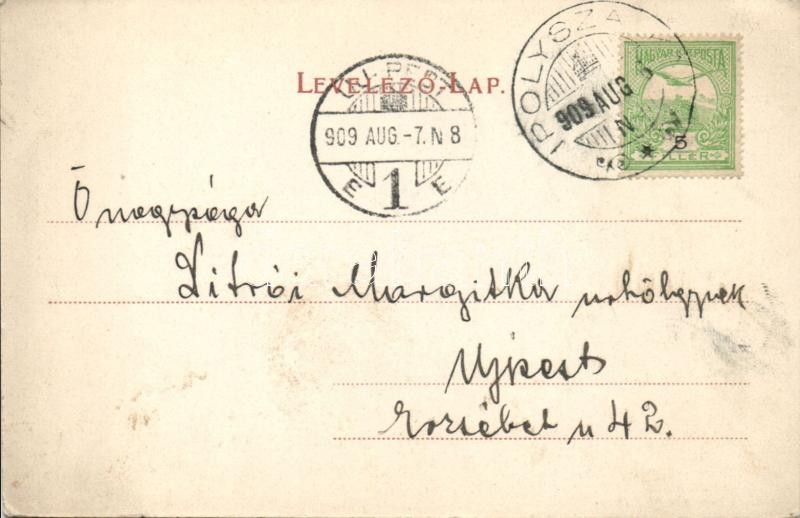 LEVELEZŐ-LAP.
ÚJPEST
909 AUG.-7.N 8
E 1 E
IPOLYSZA
909 AUG
N
MAGYAR KIR. POSTA
5
FILLÉR
Őnagysága
Vitrói Margitka urhölgynek
Ujpest
Erzsébet u 42.